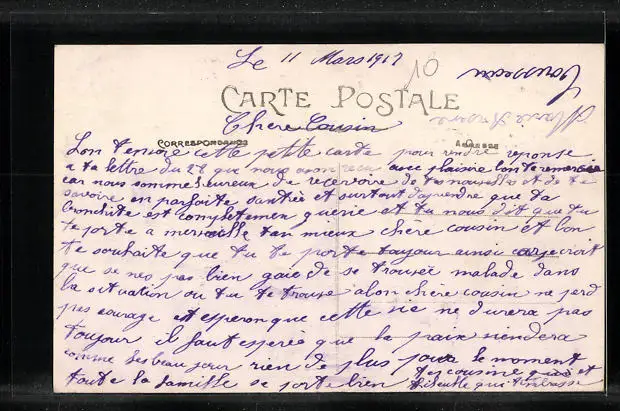 Le 11 Mars 1917
10
Rousseau
CARTE POSTALE
Chere Cousin
CORRESPONDANCE
ADRESSE
Lon tenvoie cette petite carte pour rendre reponse
a ta lettre du 28 que nous avon recu avec plaisire lon te remercie
car nous somme hureux de recevoire de tes nouvelles et de te
savoire en parfaite santée et surtout daprendre que ta
bronchite est completemen guerie et tu nous dit que tu
te porte a merveille tan mieux chere cousin et lon
te souhaite que tu te porte toujour ainsi car je croit
que se nes pas bien gaie de se trouvée malade dans
la situation ou tu te trouve alon chere cousin ne perd
pas courage et esperon que cette vie ne durera pas
toujour il faut esperée que la paix viendera
comme les beau jour rien de plus pour le moment
toute la famille se porte bien tes cousine et
qui tembrasse